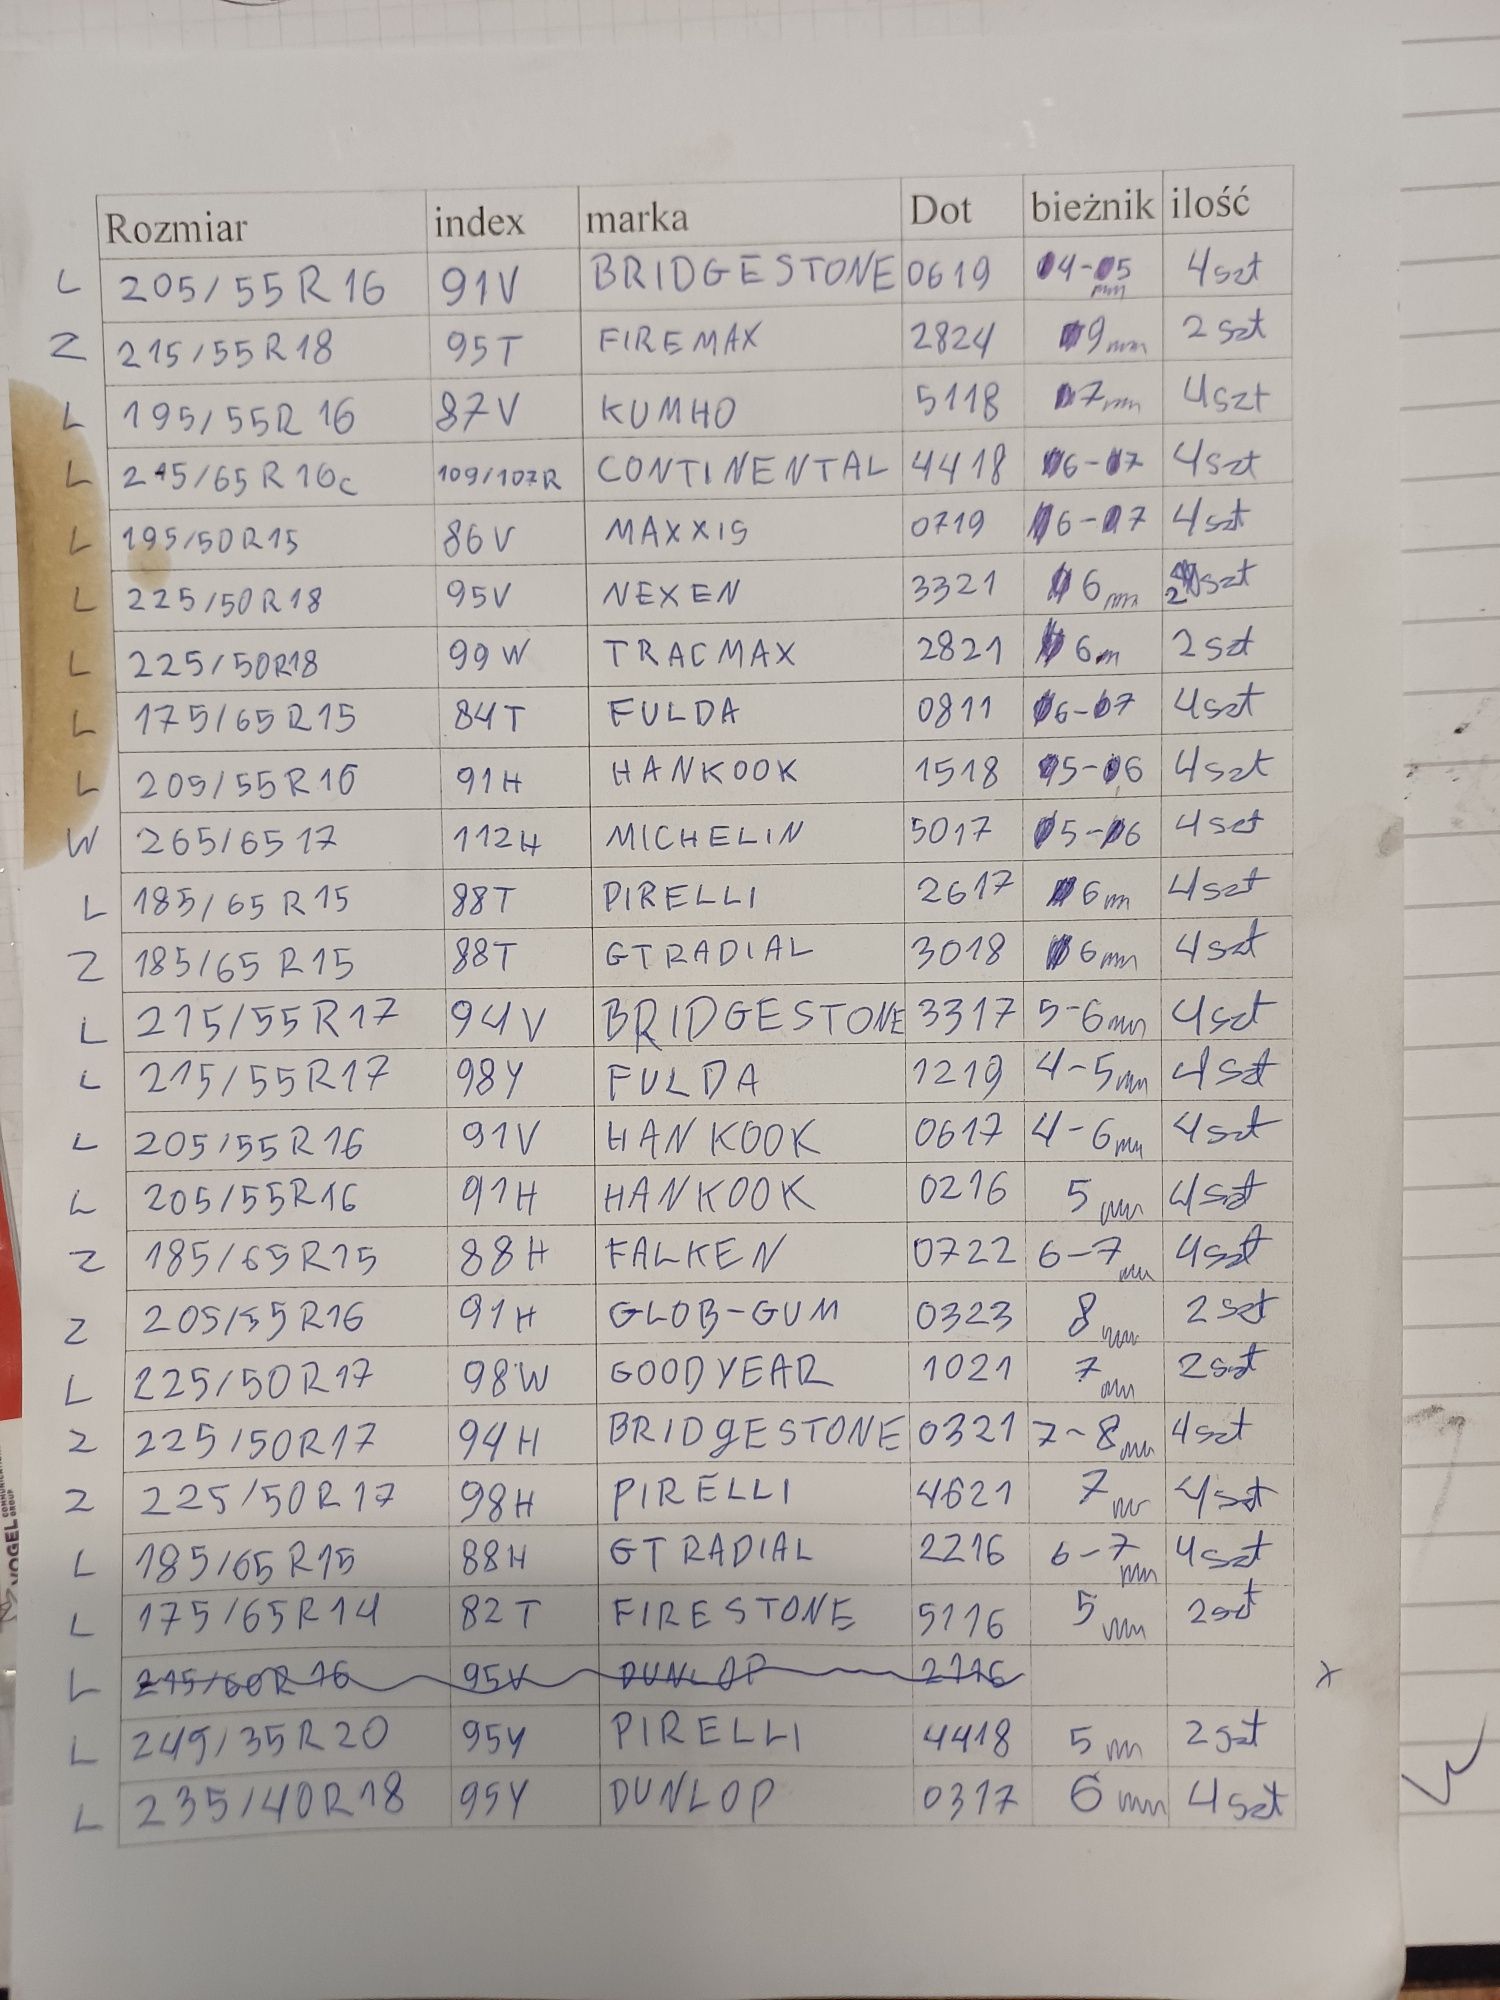 Rozmiar index marka Dot bieżnik ilość
L 205/55R16 91V BRIDGESTONE 0619 4-5 mm 4szt
Z 215/55R18 95T FIREMAX 2824 9mm 2szt
L 195/55R16 87V KUMHO 5118 7mm 4szt
L 215/65R16c 109/107R CONTINENTAL 4418 6-7 4szt
L 195/50R15 86V MAXXIS 0719 6-7 4szt
L 225/50R18 95V NEXEN 3321 6mm 2szt
L 225/50R18 99W TRACMAX 2821 6m 2szt
L 175/65R15 84T FULDA 0811 6-7 4szt
L 205/55R16 91H HANKOOK 1518 5-6 4szt
W 265/65 17 112H MICHELIN 5017 5-6 4szt
L 185/65R15 88T PIRELLI 2617 6m 4szt
Z 185/65R15 88T GTRADIAL 3018 6mm 4szt
L 215/55R17 94V BRIDGESTONE 3317 5-6mm 4szt
L 215/55R17 98Y FULDA 1219 4-5mm 4szt
L 205/55R16 91V HANKOOK 0617 4-6mm 4szt
L 205/55R16 91H HANKOOK 0216 5mm 4szt
Z 185/65R15 88H FALKEN 0722 6-7mm 4szt
Z 205/55R16 91H GLOB-GUM 0323 8mm 2szt
L 225/50R17 98W GOODYEAR 1021 7mm 2szt
Z 225/50R17 94H BRIDgESTONE 0321 7-8mm 4szt
Z 225/50R17 98H PIRELLI 4621 7m 4szt
L 185/65R15 88H GT RADIAL 2216 6-7mm 4szt
L 175/65R14 82T FIRESTONE 5116 5mm 2szt
L 215/60R16 95V DUNLOP 2116 x
L 245/35R20 95Y PIRELLI 4418 5m 2szt
L 235/40R18 95Y DUNLOP 0317 6mm 4szt
VOGEL COMMUNICATIONS GROUP